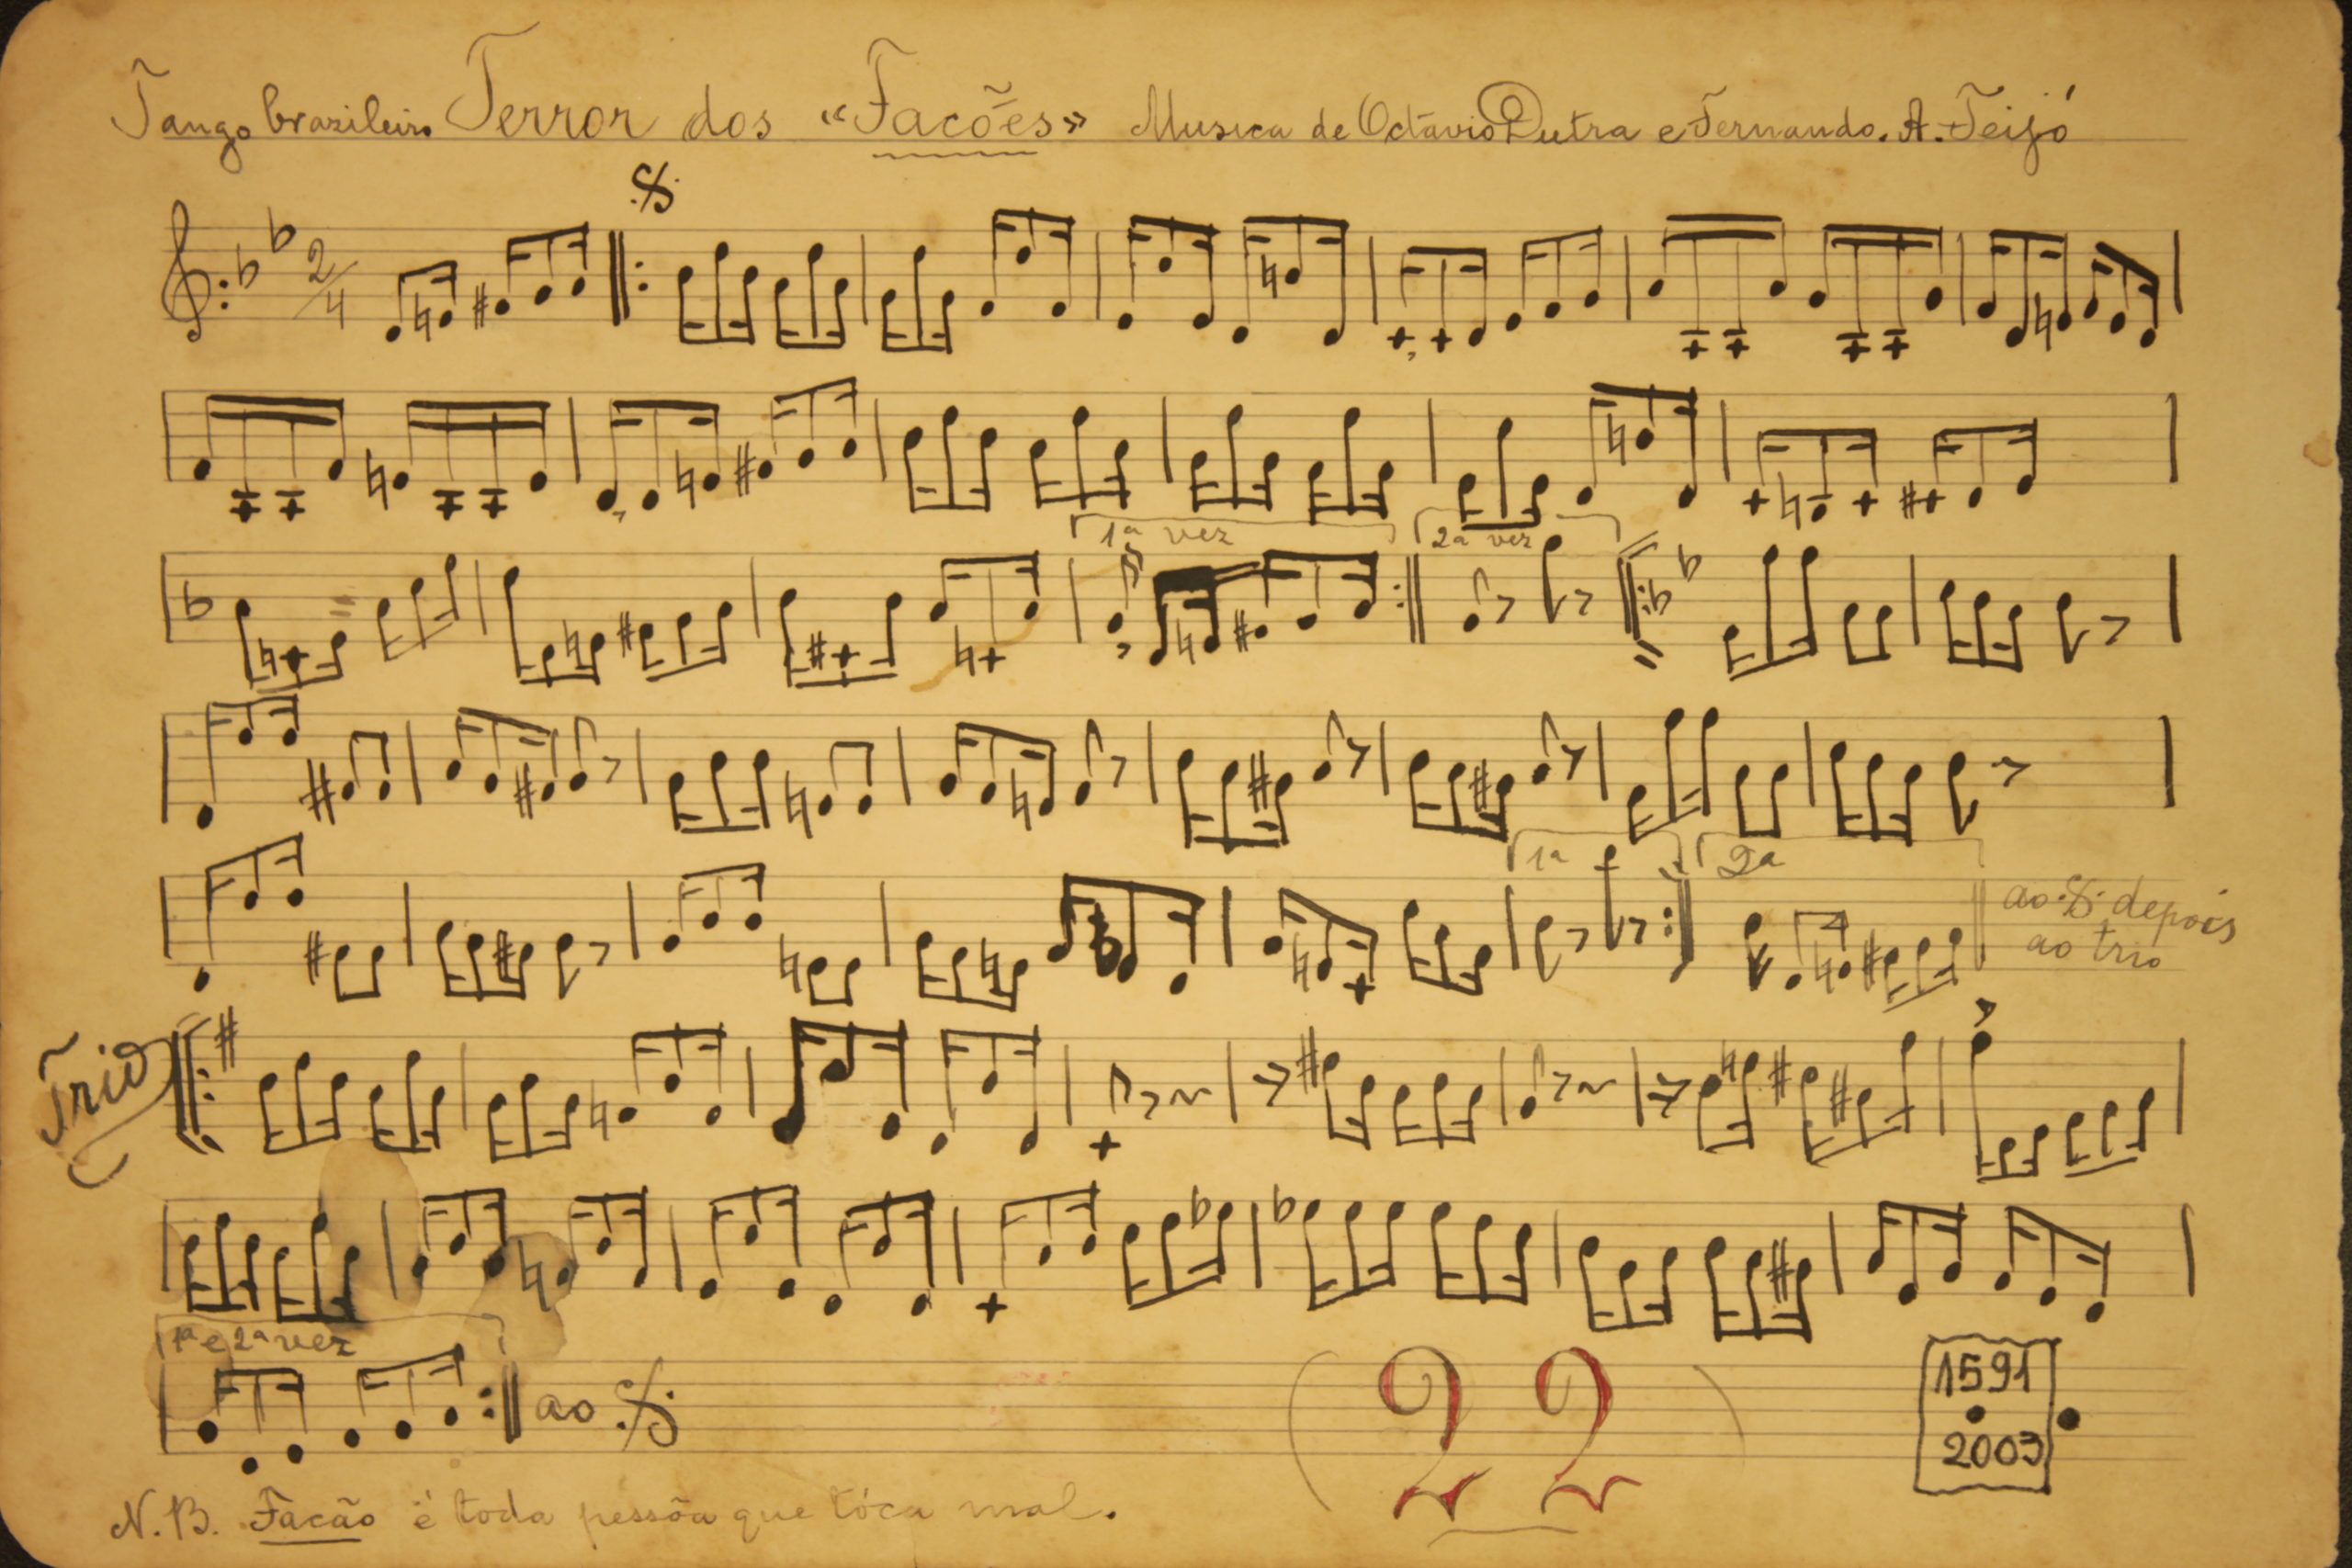 Tango brazileiro Terror dos «Facões» Musica de Octavio Dutra e Fernando. A. Teijó
2/4
1ª vez 2ª vez
1ª 2ª
ao 𝄋 depois
ao trio
Trio
1ª e 2ª vez
ao 𝄋
( 22 )
1591
2003
N.B. Facão é toda pessõa que tóca mal.